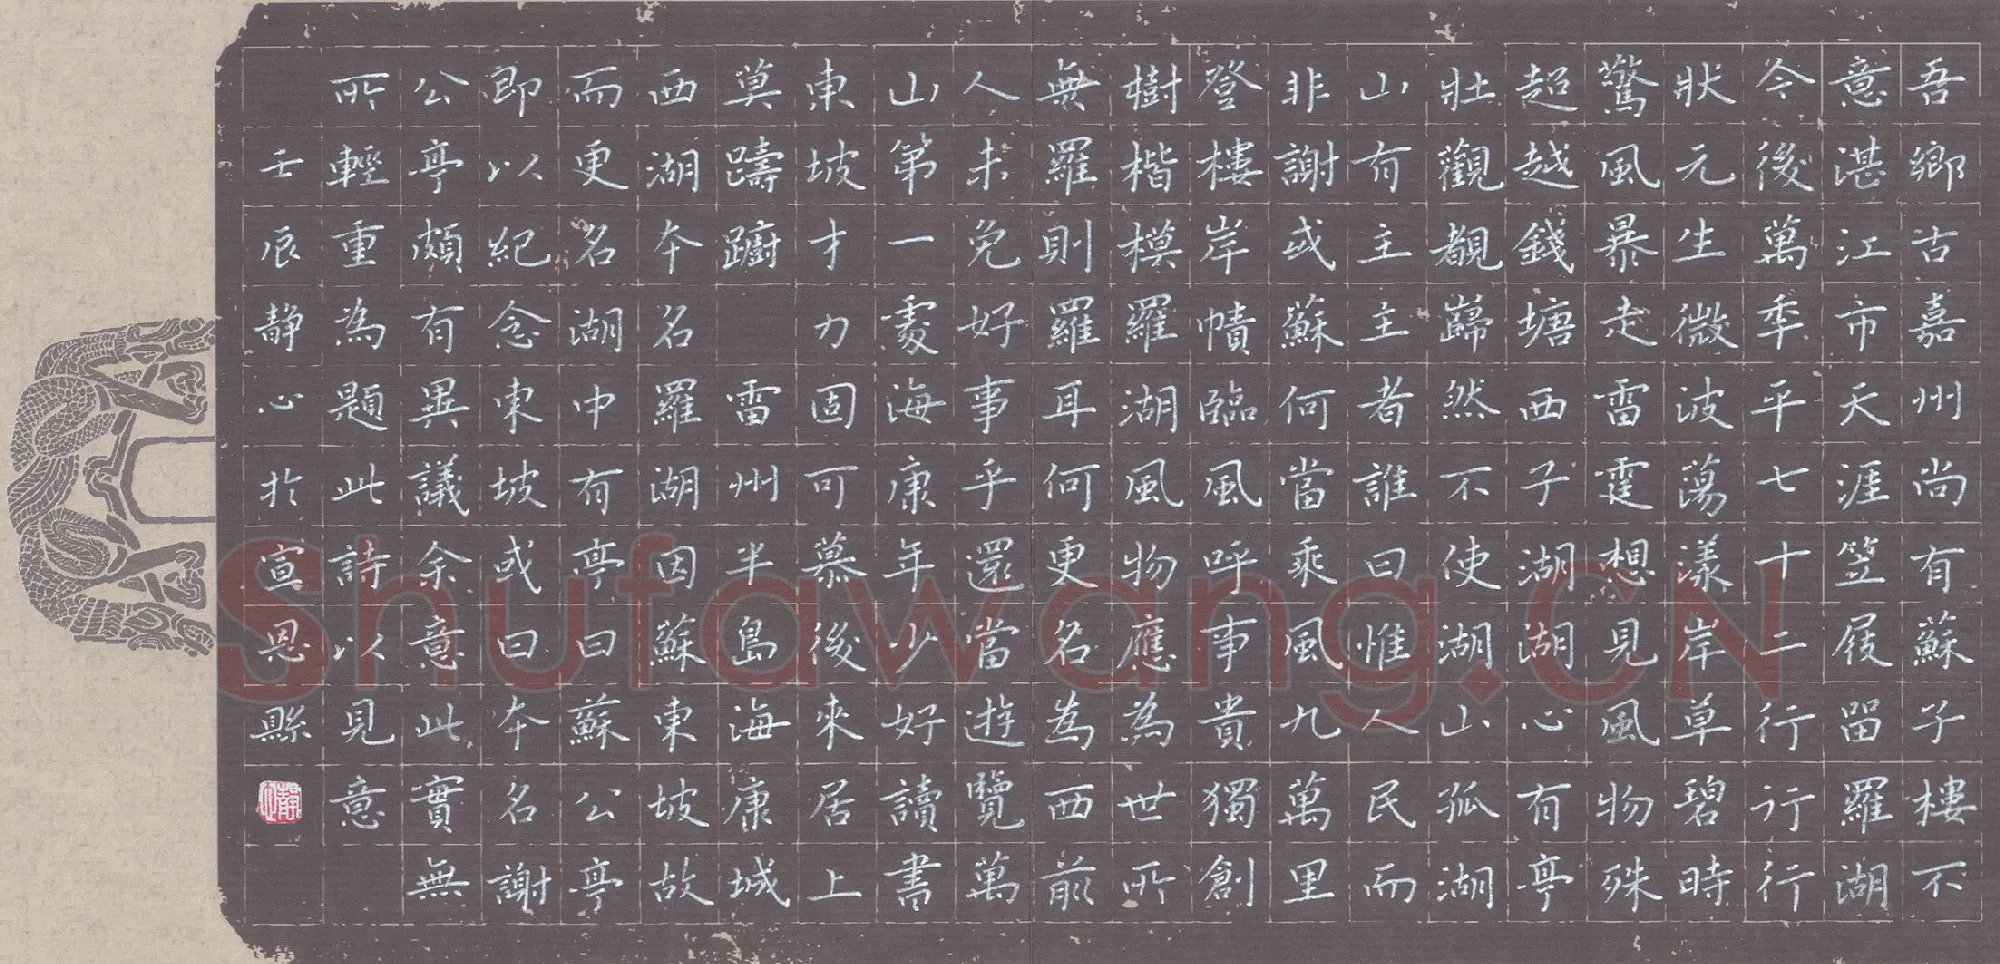 吾鄉古嘉州尚有蘇子樓不
意湛江市天涯笠屐留羅湖
今後萬季平七十二行行行
狀元生微波蕩漾岸草碧時
驚風暴走雷霆想見風物殊
超越錢塘西子湖湖心有亭
壯觀覩巋然不使湖山孤湖
山有主主者誰曰惟人民而
非謝或蘇何當乘風九萬里
登樓岸幘臨風呼事貴獨創
樹楷模羅湖風物應為世所
無羅則羅耳何更名為西前
人未免好事乎還當遊覽萬
山第一處海康年少好讀書
東坡才力固可慕後來居上
莫躊躕 雷州半島海康城
西湖本名羅湖因蘇東坡故
而更名湖中有亭曰蘇公亭
即以紀念東坡或曰本名謝
公亭頗有異議余意此實無
所輕重為題此詩以見意
壬辰靜心於宣恩縣
Shufawang.CN